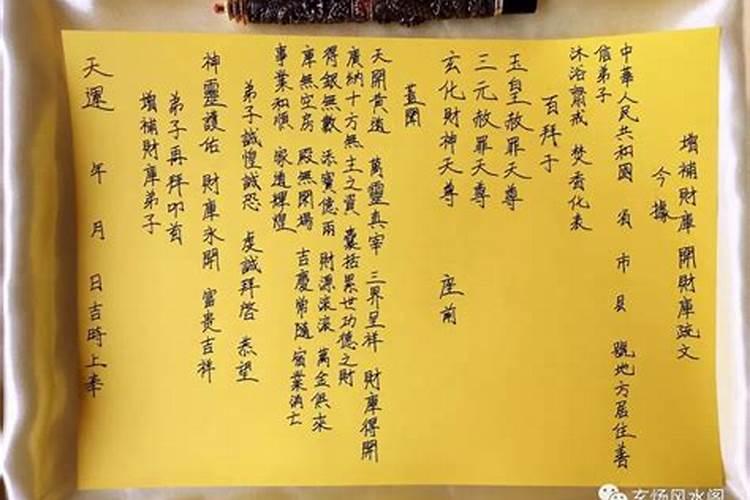 增補財庫 開財庫疏文
今據
中華人民共和國 省 市 縣 號地方居住善
信弟子
沐浴齋戒 焚香化表
百拜于
玉皇赦罪天尊
三元赦罪天尊
玄化財神天尊 座前
蓋聞
天開黃道 萬靈真宰 三界呈祥 財庫得開
廣納十方無主之資 囊括累世功德之財
得銀無數 添寶億兩 財源滾滾 萬金俱來
庫無空房 殿無閑場 吉慶常隨 宿業消亡
事業和順 家道輝煌
弟子誠惶誠恐 虔誠拜啓 恭望
神靈護佑 財庫永開 富貴吉祥
弟子再拜叩首
增補財庫弟子
天運 年 月 日吉時上奉
玄杨风水阁